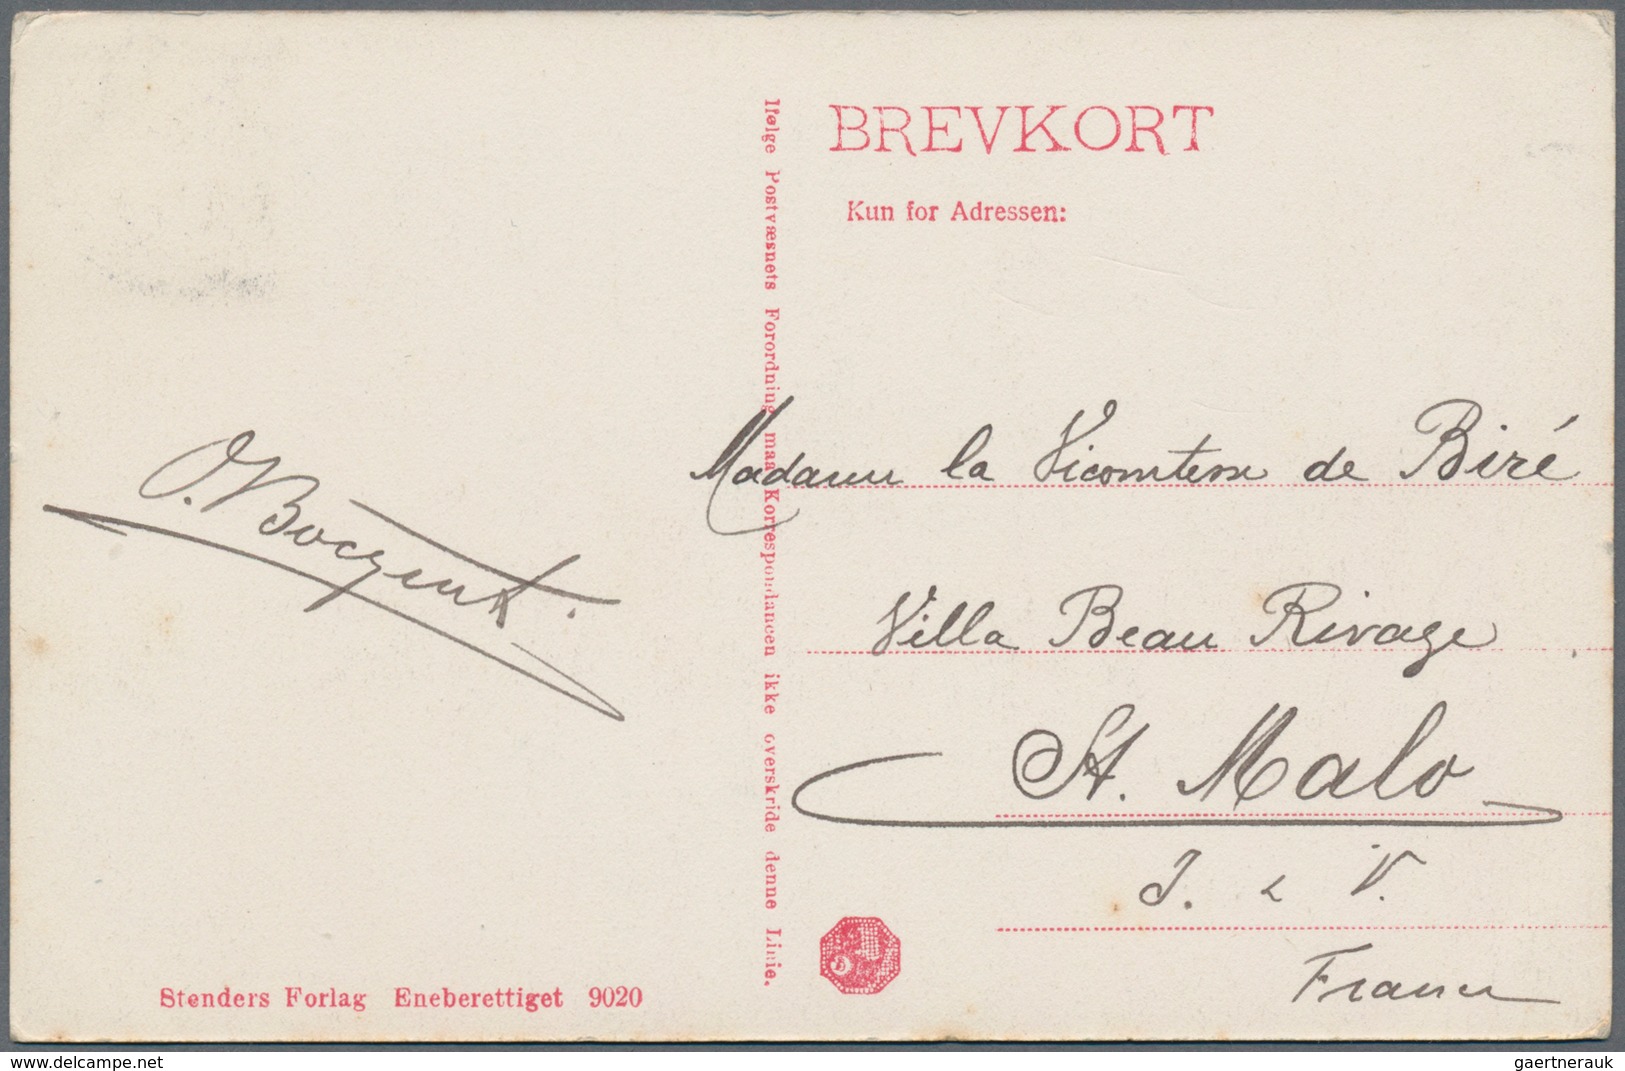 BREVKORT
Kun for Adressen:
Ifølge Postvæsnets Forordning maa Korrespondancen ikke overskride denne Linie.
Madame la Vicomtesse de Biré
Villa Beau Rivage
St. Malo
I. & V.
France
Stenders Forlag Eneberettiget 9020
www.delcampe.net
gaertnerauk